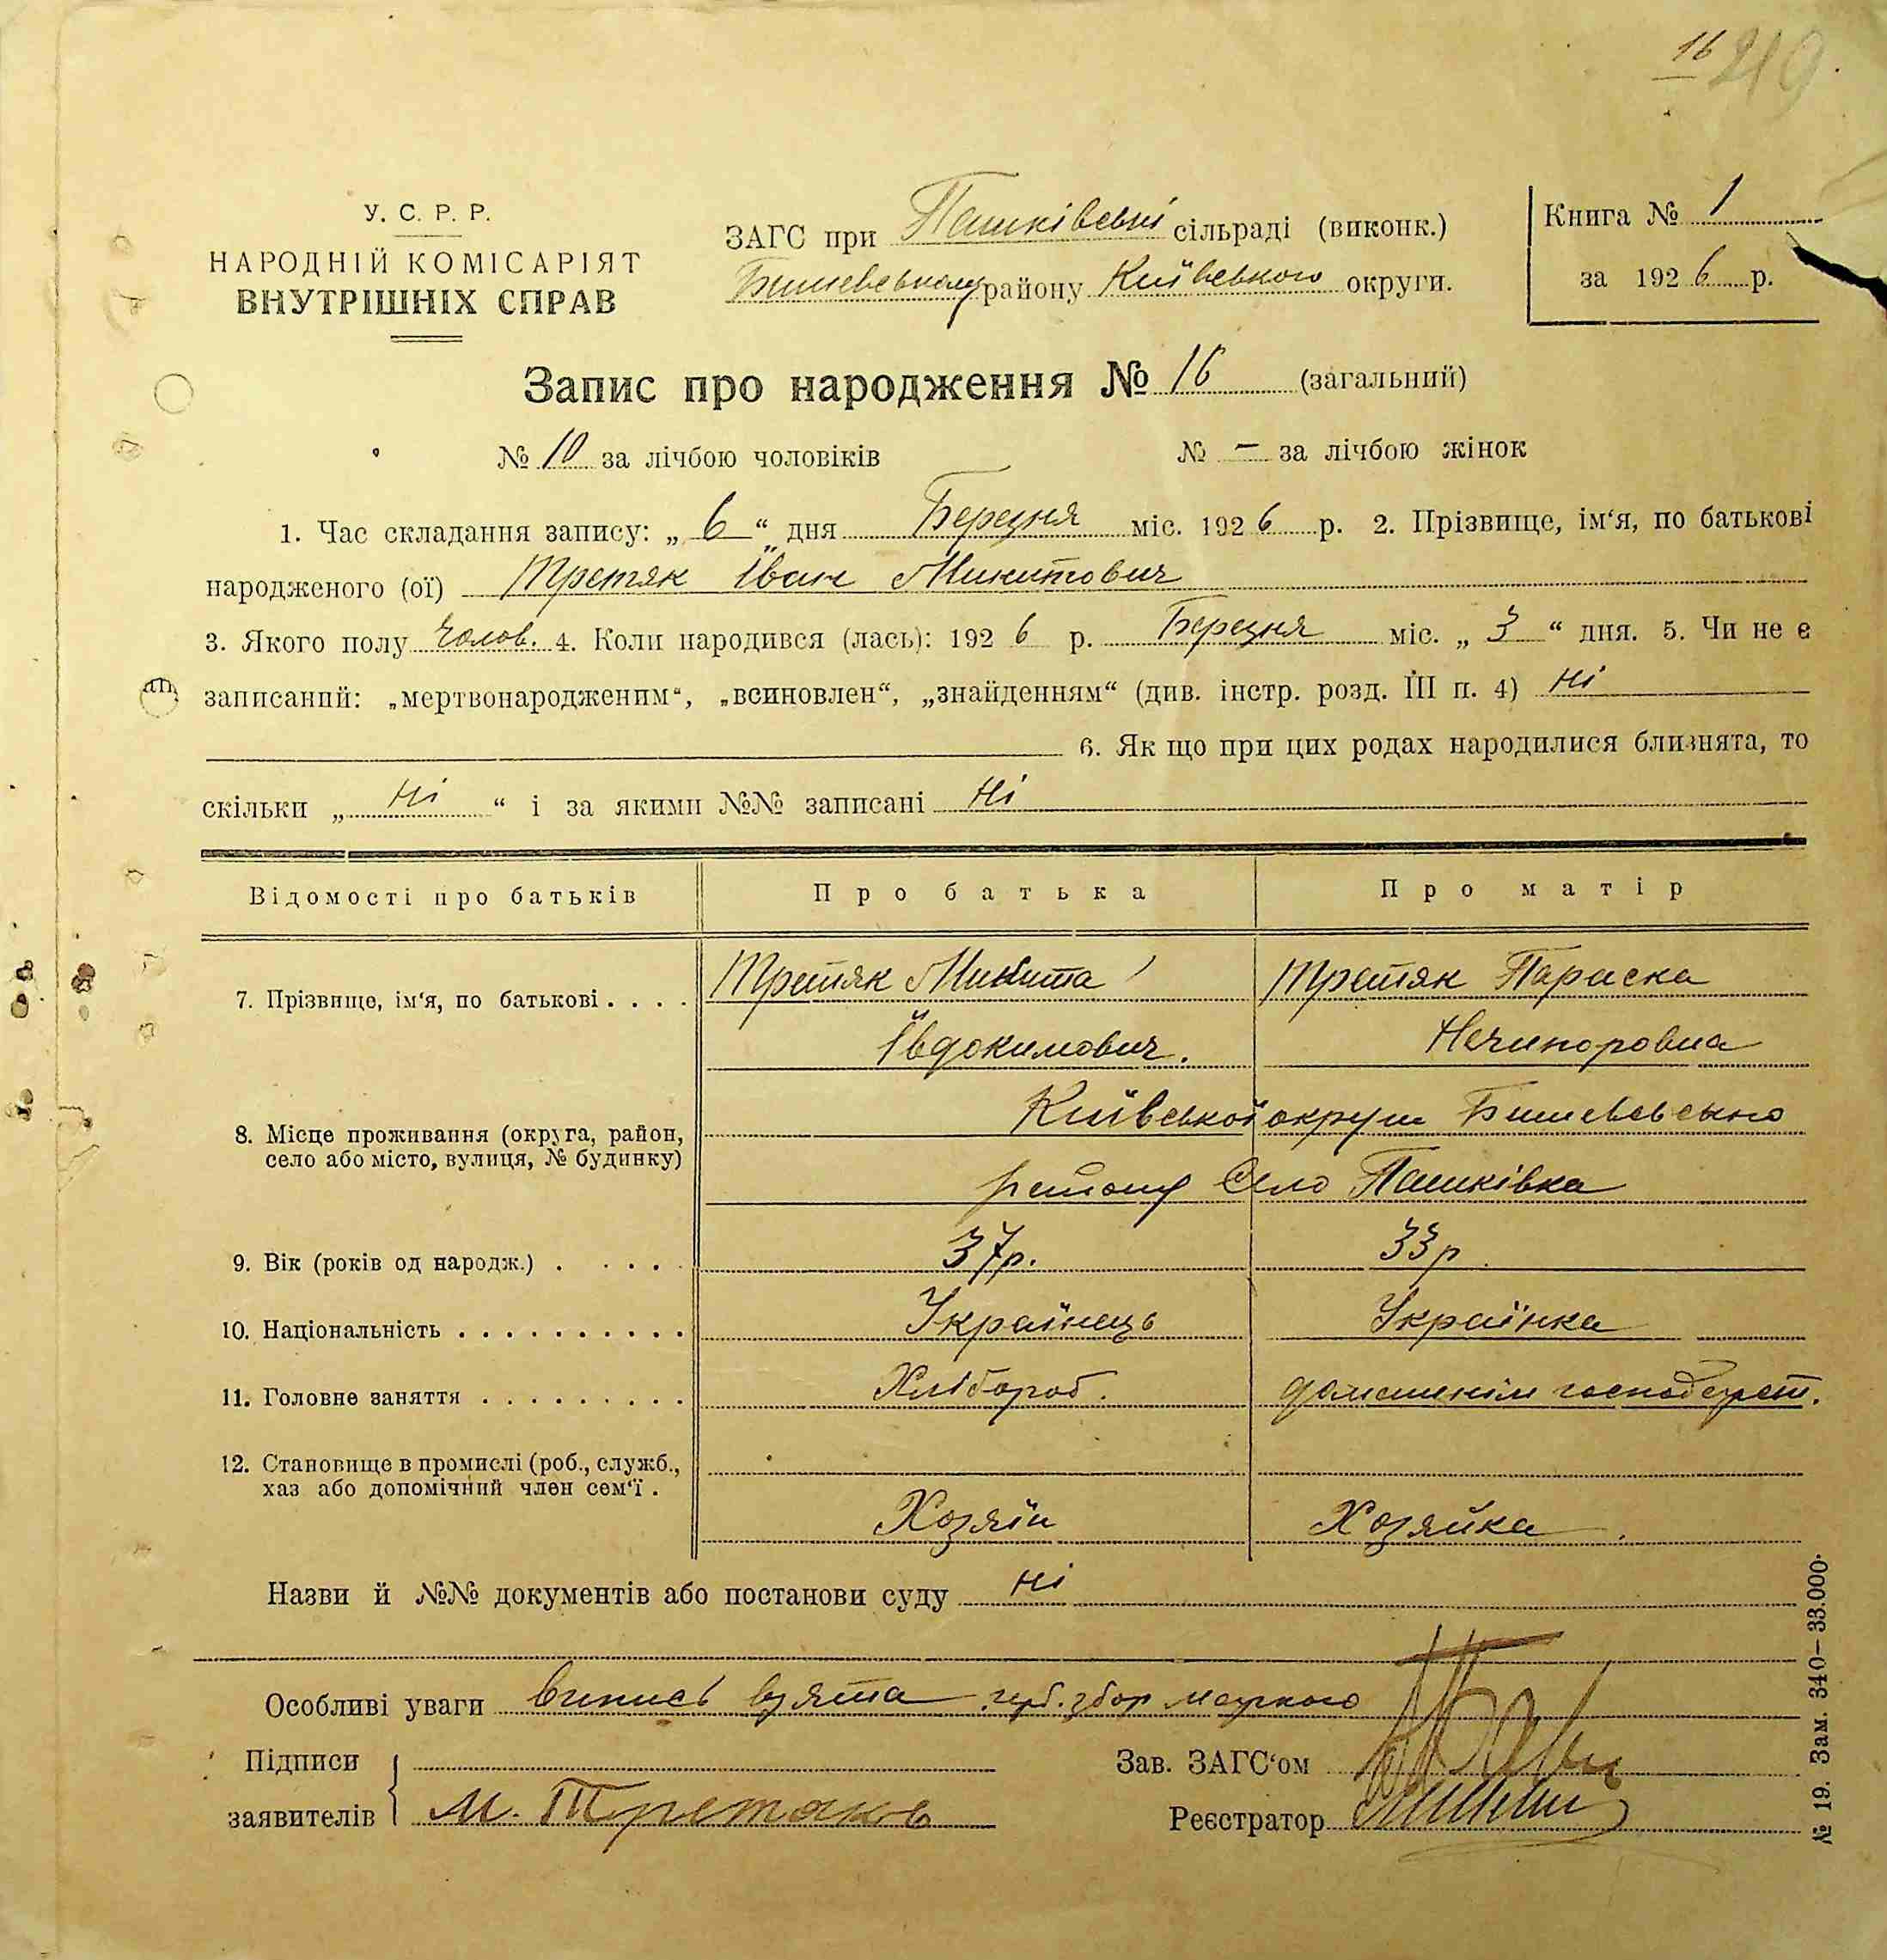 16 219.
У. С. Р. Р.
НАРОДНІЙ КОМІСАРІЯТ
ВНУТРІШНІХ СПРАВ
ЗАГС при Пашківській сільраді (виконк.)
Бишевському району Київського округи.
Книга № 1
за 1926 р.
Запис про народження № 16 (загальний)
№ 10 за лічбою чоловіків № — за лічбою жінок
1. Час складання запису: „ 6 “ дня Березня міс. 1926 р. 2. Прізвище, ім‘я, по батькові
народженого (ої) Третяк Іван Микитович
3. Якого полу Чолов. 4. Коли народився (лась): 1926 р. Березня міс. „ 3 “ дня. 5. Чи не є
записаний: „мертвонародженим“, „всиновлен“, „знайденням“ (див. інстр. розд. III п. 4) Ні
6. Як що при цих родах народилися близнята, то
скільки „ Ні “ і за якими №№ записані Ні
Відомості про батьків Про батька Про матір
7. Прізвище, ім‘я, по батькові . . . . Третяк Микита Третяк Параска
Івдокимович. Нечипоровна
8. Місце проживання (округа, район,
село або місто, вулиця, № будинку)
Київської округи Бишевського
району Село Пашківка
9. Вік (років од народж.) . . . . . 37р. 33р
10. Національність . . . . . . . . . . Українець Українка
11. Головне заняття . . . . . . . . . Хлібороб. домашнім господарст.
12. Становище в промислі (роб., служб.,
хаз або допомічний член сем‘ї .
Хозяїн Хозяйка
Назви й №№ документів або постанови суду ні
Особливі уваги випись взята герб. збор
Підписи
заявителів М. Третяков
Зав. ЗАГС‘ом
Реєстратор
№ 19. Зам. 340—33.000.